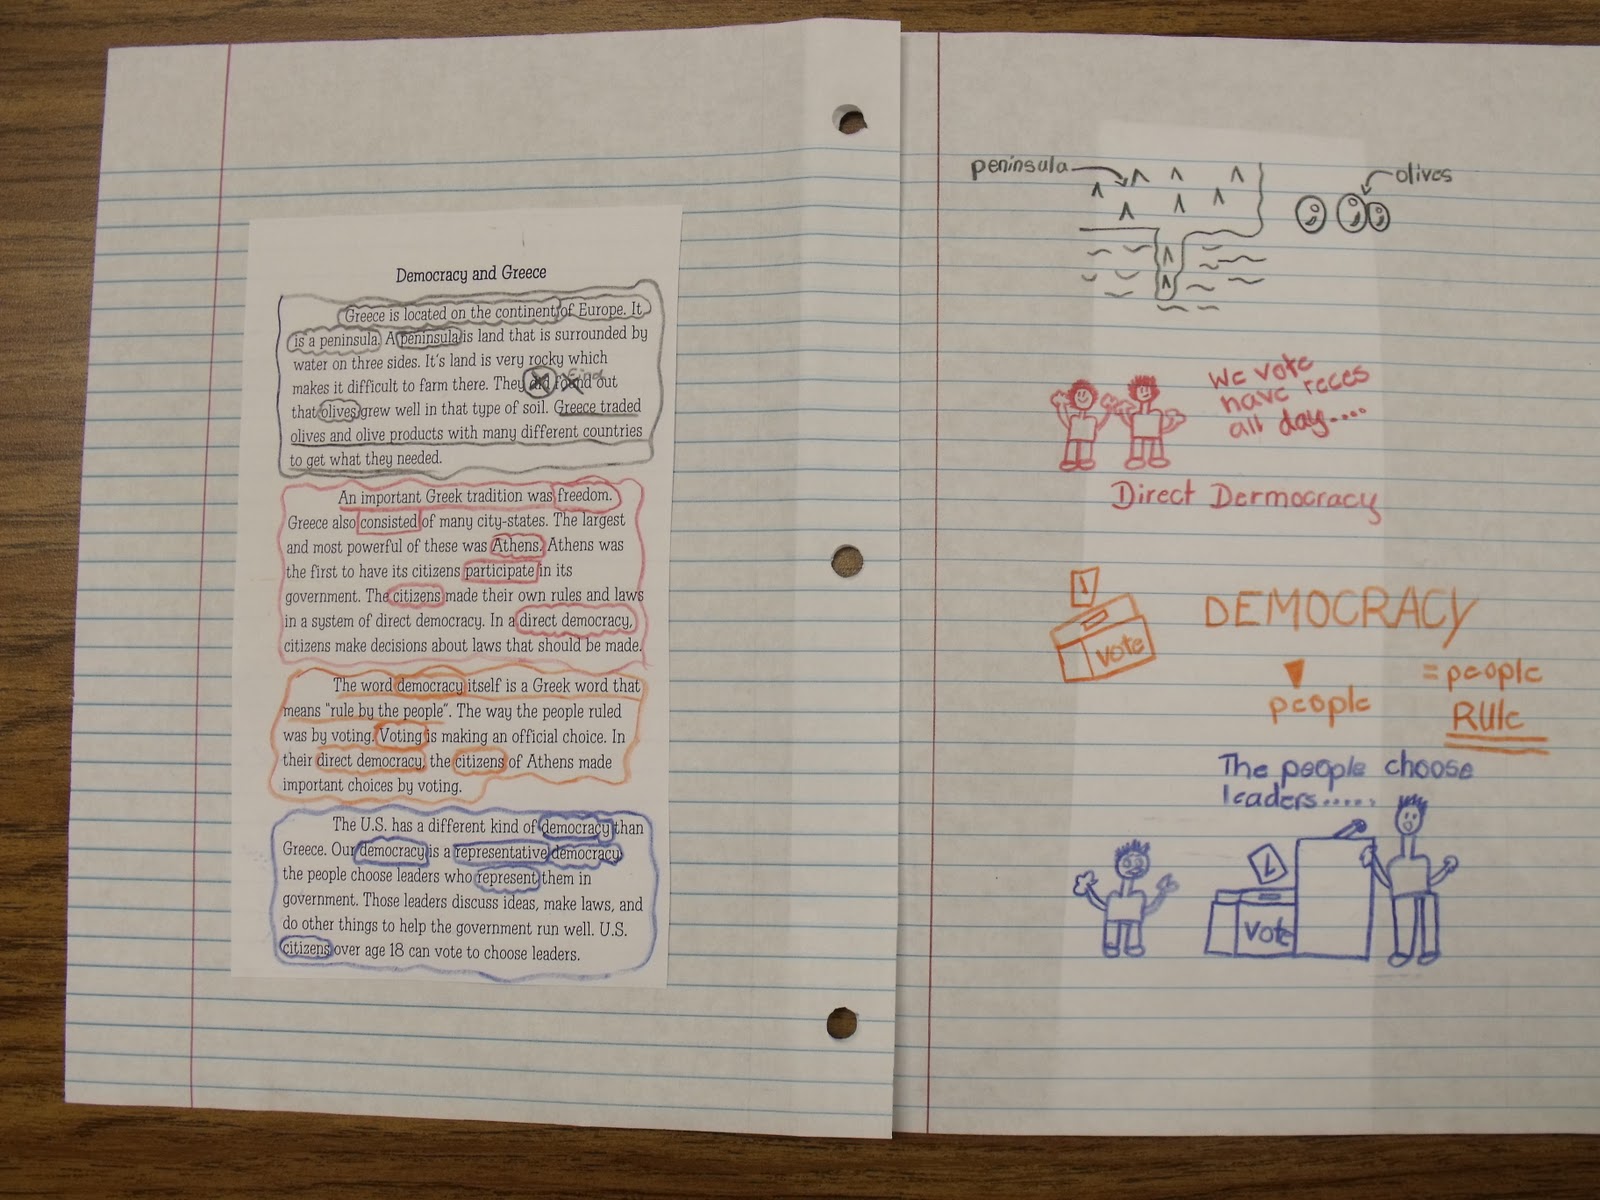 Democracy and Greece
Greece is located on the continent of Europe. It
is a peninsula. A peninsula is land that is surrounded by
water on three sides. It's land is very rocky which
find
makes it difficult to farm there. They did found out
that olives grew well in that type of soil. Greece traded
olives and olive products with many different countries
to get what they needed.
An important Greek tradition was freedom.
Greece also consisted of many city-states. The largest
and most powerful of these was Athens. Athens was
the first to have its citizens participate in its
government. The citizens made their own rules and laws
in a system of direct democracy. In a direct democracy,
citizens make decisions about laws that should be made.
The word democracy itself is a Greek word that
means "rule by the people". The way the people ruled
was by voting. Voting is making an official choice. In
their direct democracy, the citizens of Athens made
important choices by voting.
The U.S. has a different kind of democracy than
Greece. Our democracy is a representative democracy
the people choose leaders who represent them in
government. Those leaders discuss ideas, make laws, and
do other things to help the government run well. U.S.
citizens over age 18 can vote to choose leaders.
peninsula
olives
We vote
have reces
all day....
Direct Dermocracy
vote
DEMOCRACY
people
= people
RULE
The people choose
leaders.....
vote